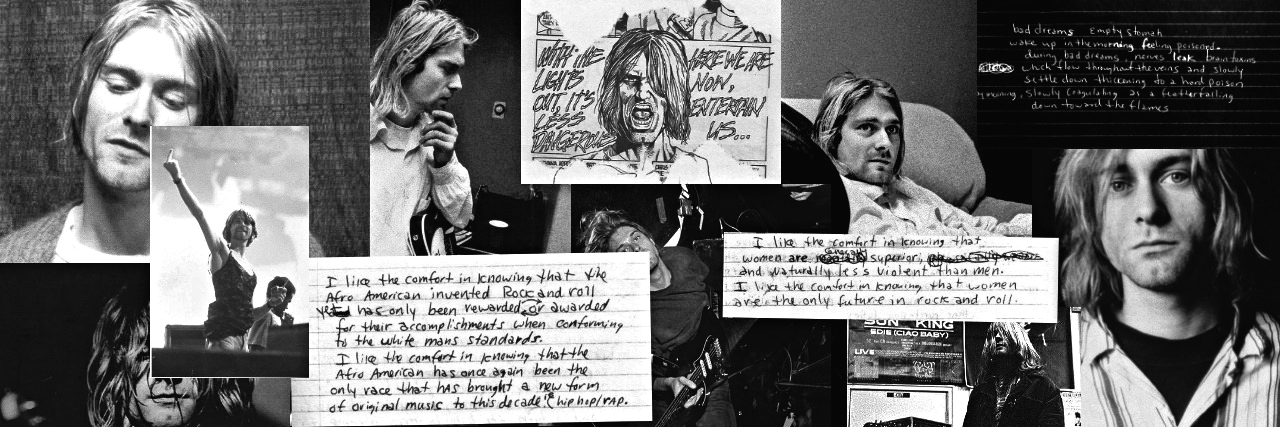 WITH THE
LIGHTS
OUT, IT'S
LESS
DANGEROUS
HERE WE ARE
NOW,
ENTERTAIN
US...
bad dreams Empty stomah
wake up in the morning feeling poisoned.
during bad dreams, nerves leak brain toxins
which flow throughout the veins and slowly
settle down thickening to a hard poison
by morning, slowly coagulating as a feather falling
down toward the flames
I like the comfort in knowing that
women are generally superior,
and naturally less violent than men.
I like the comfort in knowing that women
are the only future in rock and roll.
I like the comfort in knowing that the
Afro American invented Rock and roll
yet has only been rewarded or awarded
for their accomplishments when conforming
to the white mans standards.
I like the comfort in knowing that the
Afro American has once again been the
only race that has brought a new form
of original music to this decade (hip hop/rap.
KING
EDIE (CIAO BABY)
LIVE